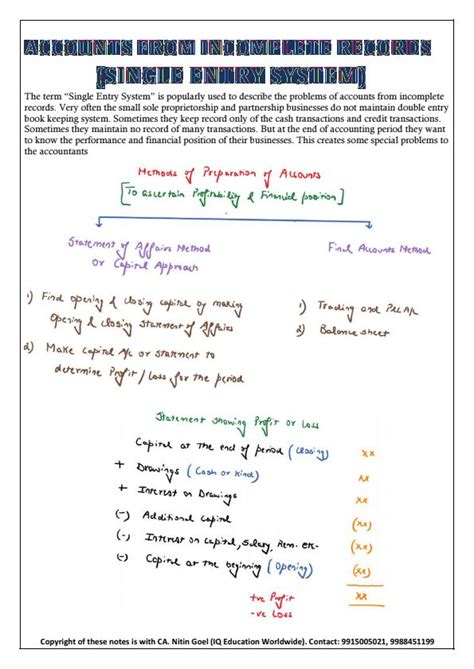 ACCOUNTS FROM INCOMPLETE RECORDS
(SINGLE ENTRY SYSTEM)
The term “Single Entry System” is popularly used to describe the problems of accounts from incomplete
records. Very often the small sole proprietorship and partnership businesses do not maintain double entry
book keeping system. Sometimes they keep record only of the cash transactions and credit transactions.
Sometimes they maintain no record of many transactions. But at the end of accounting period they want
to know the performance and financial position of their businesses. This creates some special problems to
the accountants
Methods of Preparation of Accounts
[To ascertain Profitability & Financial position]
Statement of Affairs Method
or Capital Approach
Final Accounts Method
1) Find opening & closing capital by making
Opening & closing Statement of Affairs
2) Make Capital A/c or statement to
determine Profit / Loss for the period
1) Trading and P&L A/c
2) Balance sheet
Statement showing Profit or Loss
Capital at the end of period (closing) xx
+ Drawings (Cash or kind) xx
+ Interest on Drawings xx
(-) Additional Capital (xx)
(-) Interest on Capital, Salary, Rem. etc- (xx)
(-) Capital at the beginning (opening) (xx)
+ve Profit xx
-ve Loss
Copyright of these notes is with CA. Nitin Goel (IQ Education Worldwide). Contact: 9915005021, 9988451199